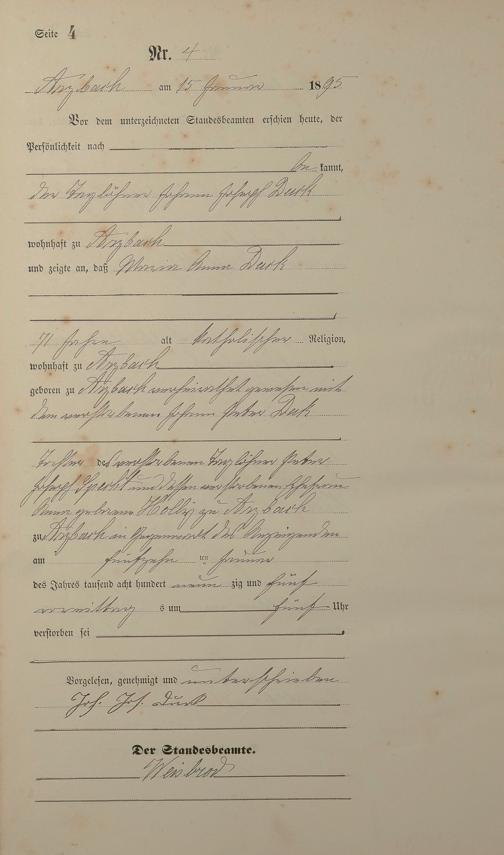 Seite 4
Nr. 4
Arzbach am 15 Januar 1895
Vor dem unterzeichneten Standesbeamten erschien heute, der
Persönlichkeit nach
be kannt,
der Taglöhner Johann Joseph
wohnhaft zu Arzbach
und zeigte an, daß Maria Anna
71 Jahre alt katholischer Religion,
wohnhaft zu Arzbach
geboren zu Arzbach verheirathet gewesen mit
dem verstorbenen Johann Peter
Tochter des verstorbenen Taglöhner Peter
Joseph und dessen verstorbenen Ehefrau
Anna geborene Holly zu Arzbach
zu Arzbach in Gegenwart des Anzeigenden
am fünfzehn ten Januar
des Jahres tausend acht hundert neun zig und fünf
vormittag s um fünf Uhr
verstorben sei
Vorgelesen, genehmigt und unterschrieben
Joh. Jos.
Der Standesbeamte.
Weisbrod